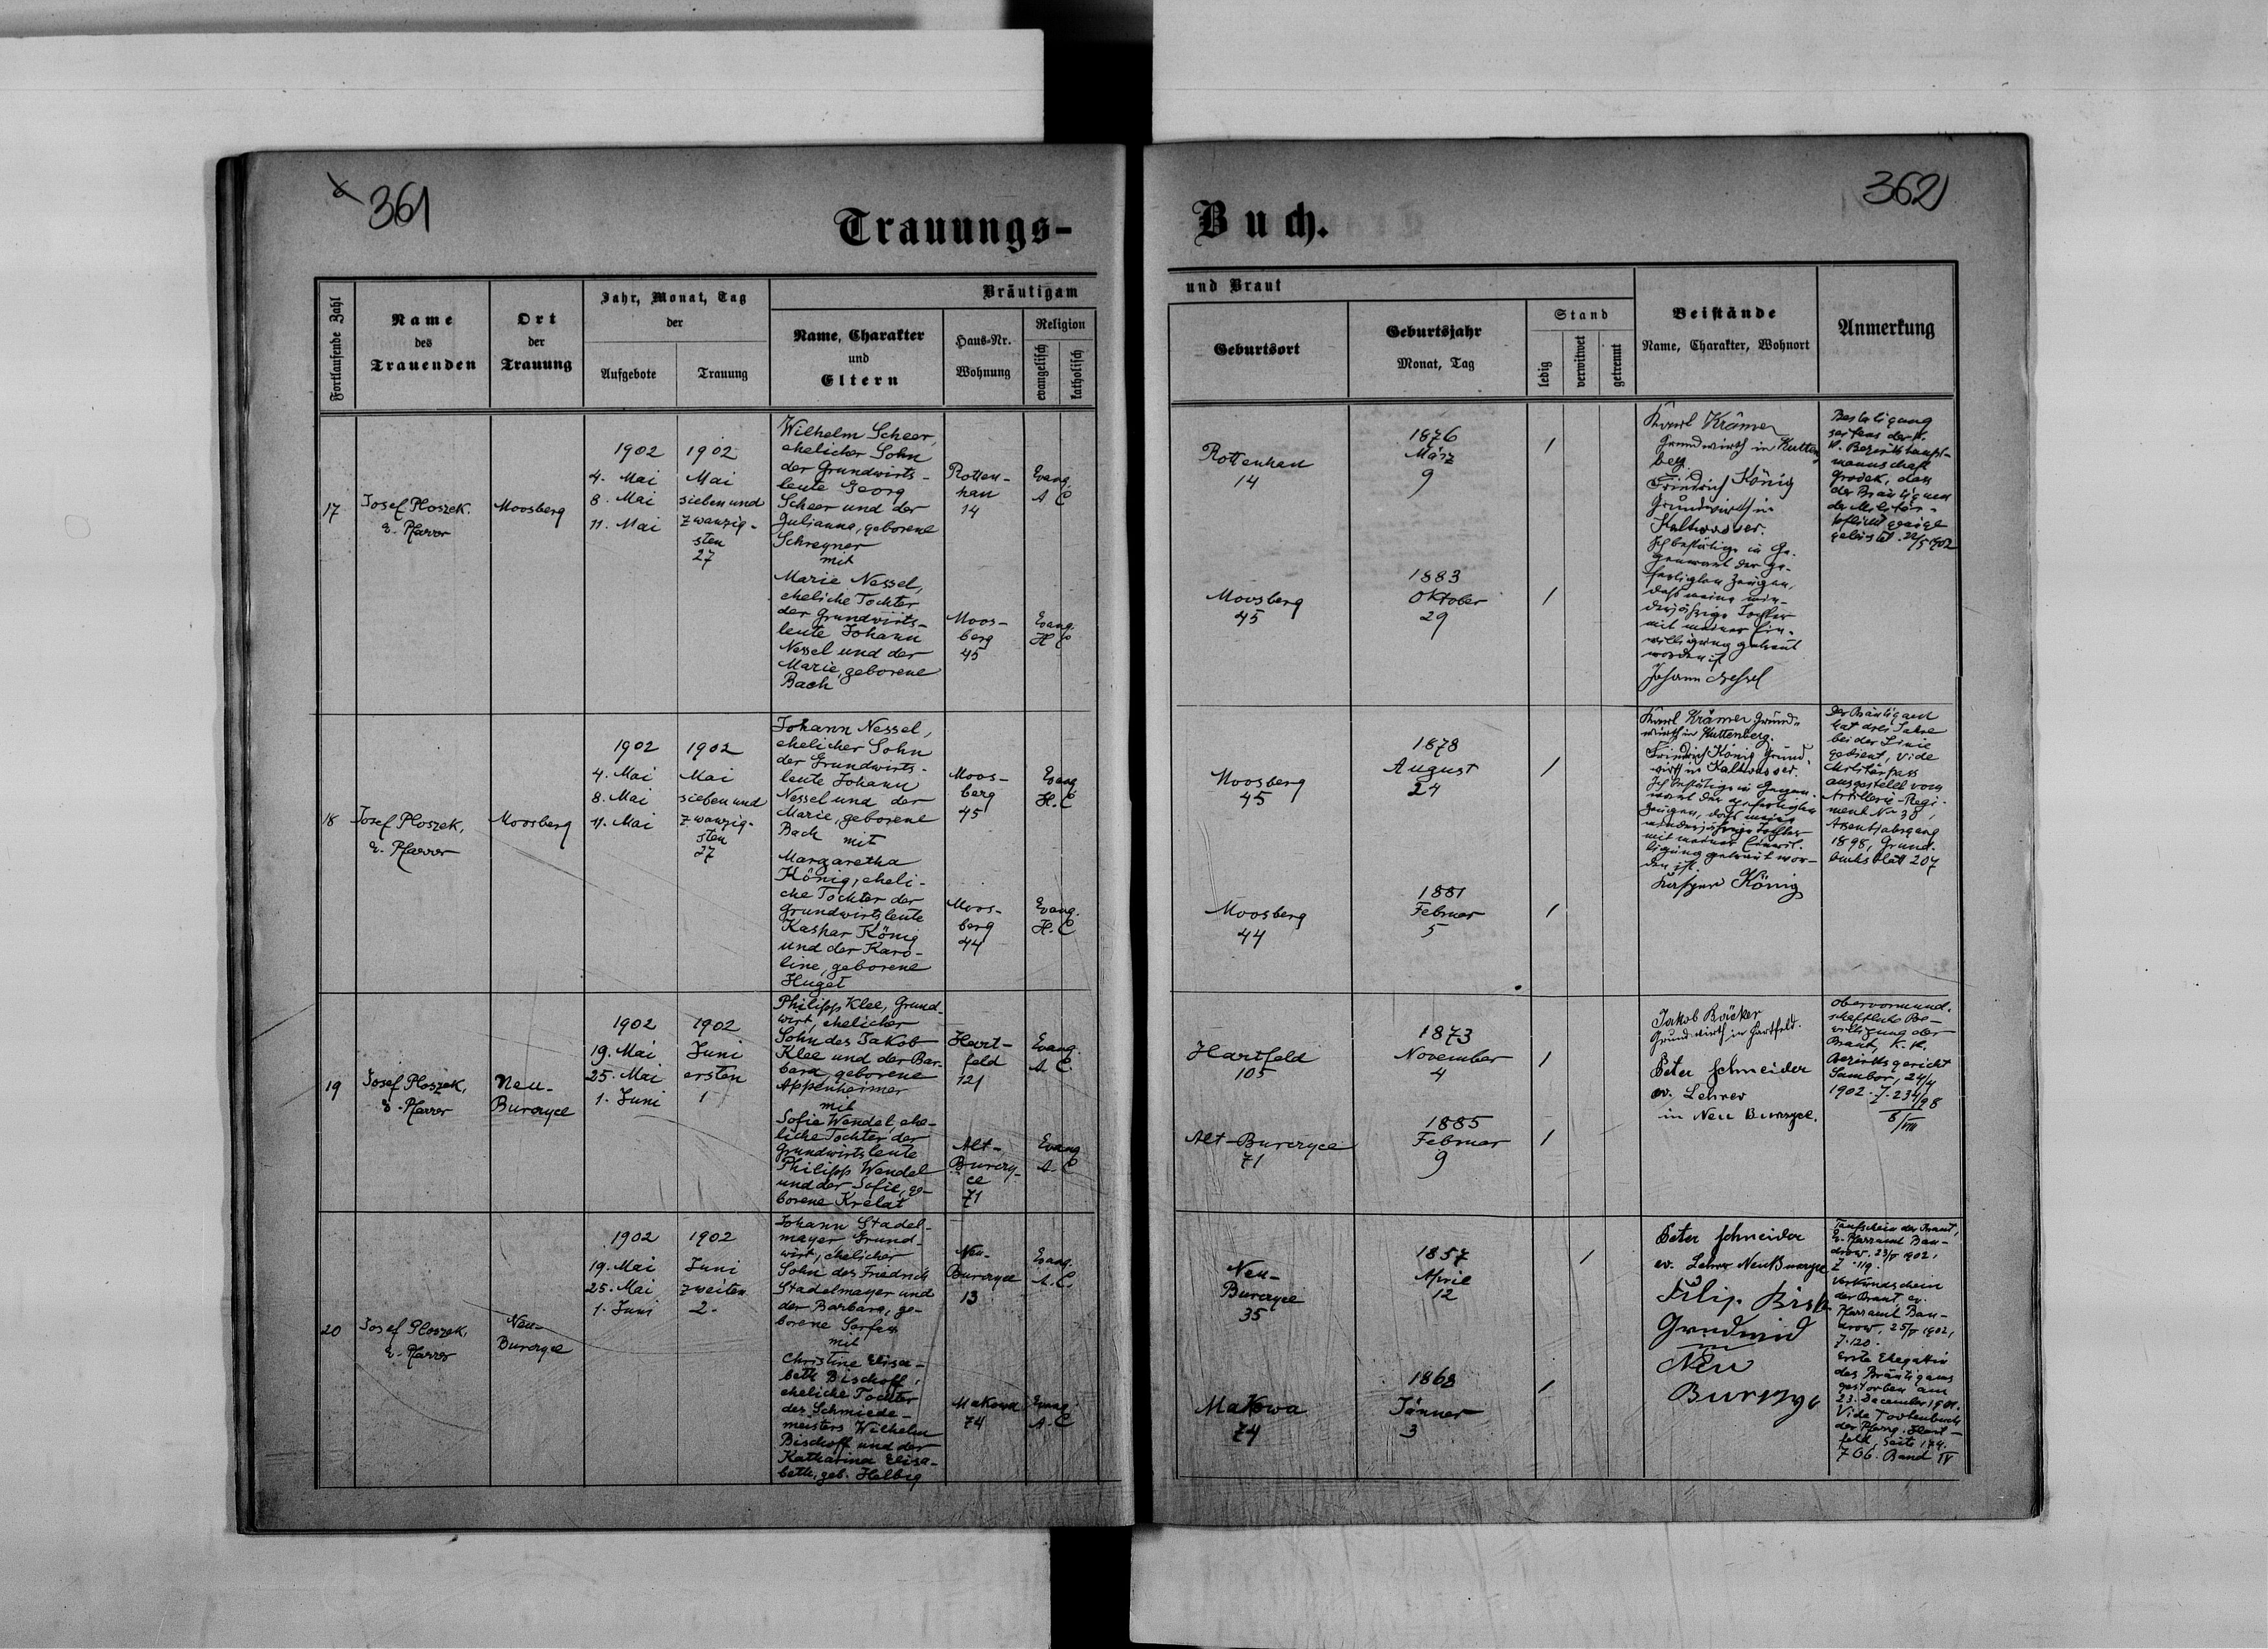 361
362
Trauungs-
Buch.
Fortlaufende Zahl
Name
des
Trauenden
Ort
der
Trauung
Jahr, Monat, Tag
der
Aufgebote
Trauung
Bräutigam
Name, Charakter
und
Eltern
Haus-Nr.
Wohnung
Religion
evangelisch
katholisch
und Braut
Geburtsort
Geburtsjahr
Monat, Tag
Stand
ledig
verwitwet
getrennt
Beistände
Name, Charakter, Wohnort
Anmerkung
17
Josef Ploszek.
e. Pfarrer
Moosberg
1902
4. Mai
8. Mai
11. Mai
1902
Mai
sieben und
zwanzig-
sten
27
Wilhelm Scheer,
ehelicher Sohn
der Grundwirts-
leute Georg
Scheer und der
Julianna, geborene
Schreyner
mit
Marie Nessel,
eheliche Tochter
der Grundwirts-
leute Johann
Nessel und der
Marie, geborene
Bach
Rotten-
han
14
Evang.
A C
Moos-
berg
45
Evang.
H C
Rottenhan
14
1876
März
9
Moosberg
45
1883
Oktober
29
Karl Krämer
Grundwirth in Kutten
berg
Friedrich König
Grundwirth in
Kaltwasser.
Ich bestätige in Ge-
genwart der ge-
fertigten Zeugen,
dass meine min-
derjährige Tochter
mit meiner Ein-
willigung getraut
worden ist
Johann Nessel
Bestätigung
seitens der k.
k. Bezirkshaupt-
mannschaft
Grodek, dass
der Bräutigam
der Militär-
pflicht
22/5 1902
18
Josef Ploszek,
e. Pfarrer
Moosberg
1902
4. Mai
8. Mai
11. Mai
1902
Mai
sieben und
zwanzig-
sten
27
Johann Nessel,
ehelicher Sohn
der Grundwirts-
leute Johann
Nessel und der
Marie, geborene
Bach mit
Margaretha
König, eheli-
che Tochter der
Grundwirtsleute
Kaspar König
und der Karo-
line, geborene
Huget
Moos-
berg
45
Evang
H. C
Moos-
berg
44
Evang.
H. C
Moosberg
45
1878
August
24
Moosberg
44
1881
Februar
5
Karl Krämer Grund-
wirth in Kuttenberg.
Friedrich König Grund-
wirth in Kaltwasser.
Ich bestätige in Gegen-
wart der gefertigten
Zeugen, dass meine
minderjährige Tochter
mit meiner Einwil-
ligung getraut wor-
den ist.
Kaspar König
Der Bräutigam
hat drei Jahre
bei der Linie
gedient, vide
Militärpass
ausgestellt vom
Artillerie-Regi-
ment No 30,
Assentjahrgang
1898, Grund-
buchsblatt 207
19
Josef Ploszek,
e. Pfarrer
Neu-
Burczyce
1902
19. Mai
25. Mai
1. Juni
1902
Juni
ersten
1
Philipp Klee, Grund-
wirt, ehelicher
Sohn des Jakob
Klee und der Bar-
bara, geborene
Appenheimer
mit
Sofie Wendel, ehe-
liche Tochter der
Grundwirtsleute
Philipp Wendel
und der Sofie, ge-
borene Krelat
Hart-
feld
121
Evang.
A. C.
Alt-
Burczy-
ce
71
Evang
A. C
Hartfeld
105
1873
November
4
Alt-Burczyce
71
1885
Februar
9
Jakob Bäcker
Grundwirth in Hartfeld.
Peter Schneider
ev. Lehrer
in Neu Burczyce.
Obervormund-
schaftliche Be-
willigung der
Braut, K. K.
Bezirksgericht
Sambor, 24/4
1902. Z. 234/98
8/VIII
20
Josef Ploszek,
e. Pfarrer
Neu-
Burczyce
1902
19. Mai
25. Mai
1. Juni
1902
Juni
zweiten
2.
Johann Stadel-
mayer, Grund-
wirt, ehelicher
Sohn des Friedrich
Stadelmayer und
der Barbara, ge-
borene
mit
Christine Elisa-
beth Bischoff,
eheliche Tochter
des Schmiede-
meisters Wilhelm
Bischoff und der
Katharina Elisa-
beth, geb. Helbig
Neu-
Burczyce
13
Evang.
A. C.
Makowa
74
Evang.
A. C
Neu-
Burczyce
35
1857
April
12
Makowa
74
1868
Jänner
3
Peter Schneider
ev. Lehrer Neu Burczyce
Filip
in
Neu
Taufschein der Braut,
Ev. Pfarramt Ban-
drow. 23/5 1902,
Z. 119.
Verkündschein
der Braut ev.
Pfarramt Ban-
drow, 25/5 1902,
Z. 120.
Erste Ehegattin
des Bräutigams
gestorben am
23. December 1901.
Vide Todtenbuch
der Pfarrg. Hart-
feld, Seite 174.
Z 66. Band IV